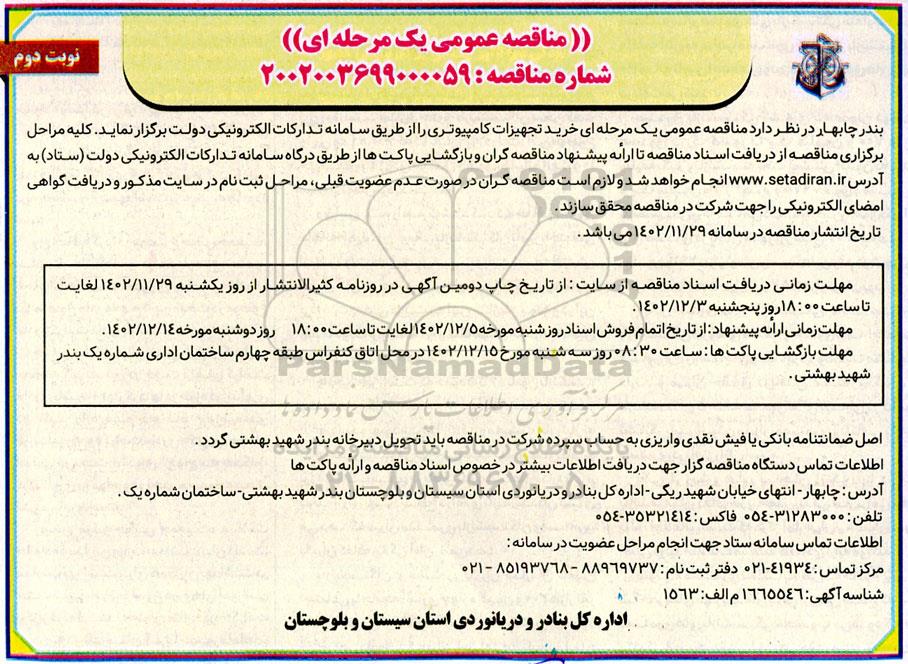 (( مناقصه عمومی یک مرحله ای))
شماره مناقصه : ۲۰۰۲۰۰۳۶۹۹۰۰۰۰۵۹
نوبت دوم
بندر چابهار در نظر دارد مناقصه عمومی یک مرحله ای خرید تجهیزات کامپیوتری را از طریق سامانه تدارکات الکترونیکی دولت برگزار نماید. کلیه مراحل
برگزاری مناقصه از دریافت اسناد مناقصه تا ارائه پیشنهاد مناقصه گران و بازگشایی پاکت ها از طریق درگاه سامانه تدارکات الکترونیکی دولت (ستاد) به
آدرس www.setadiran.ir انجام خواهد شد و لازم است مناقصه گران در صورت عدم عضویت قبلی، مراحل ثبت نام در سایت مذکور و دریافت گواهی
امضای الکترونیکی را جهت شرکت در مناقصه محقق سازند.
تاریخ انتشار مناقصه در سامانه ۱۴۰۲/۱۱/۲۹ می باشد.
مهلت زمانی دریافت اسناد مناقصه از سایت : از تاریخ چاپ دومین آگهی در روزنامه کثیرالانتشار از روز یکشنبه ۱۴۰۲/۱۱/۲۹ لغایت
تا ساعت ۱۸:۰۰ روز پنجشنبه ۱۴۰۲/۱۲/۳.
مهلت زمانی ارائه پیشنهاد : از تاریخ اتمام فروش اسناد روز شنبه مورخه ۱۴۰۲/۱۲/۵ لغایت تا ساعت ۱۸:۰۰ روز دوشنبه مورخه ۱۴۰۲/۱۲/۱۴.
مهلت بازگشایی پاکت ها : ساعت ۰۸:۳۰ روز سه شنبه مورخ ۱۴۰۲/۱۲/۱۵ در محل اتاق کنفراس طبقه چهارم ساختمان اداری شماره یک بندر
شهید بهشتی .
ParsNamadData
مرکز فرآوری اطلاعات پارس نماد داده ها
اصل ضمانتنامه بانکی یا فیش نقدی واریزی به حساب سپرده شرکت در مناقصه باید تحویل دبیرخانه بندر شهید بهشتی گردد .
پایگاه اطلاع رسانی مناقصه و مزایده
اطلاعات تماس دستگاه مناقصه گزار جهت دریافت اطلاعات بیشتر در خصوص اسناد مناقصه و ارائه پاکت ها
۰۲۱-۸۸۳۴۹۶۷۰-۵
آدرس : چابهار - انتهای خیابان شهید ریگی - اداره کل بنادر و دریانوردی استان سیستان و بلوچستان بندر شهید بهشتی- ساختمان شماره یک .
تلفن : ۳۱۲۸۳۰۰۰-۰۵۴ فاکس : ۳۵۳۲۱۴۱۴-۰۵۴
اطلاعات تماس سامانه ستاد جهت انجام مراحل عضویت در سامانه :
مرکز تماس : ۴۱۹۳۴-۰۲۱ دفتر ثبت نام : ۸۸۹۶۹۷۳۷ - ۸۵۱۹۳۷۶۸ - ۰۲۱
شناسه آگهی : ۱۶۶۵۵۴۶ م الف : ۱۵۶۳
اداره کل بنادر و دریانوردی استان سیستان و بلوچستان